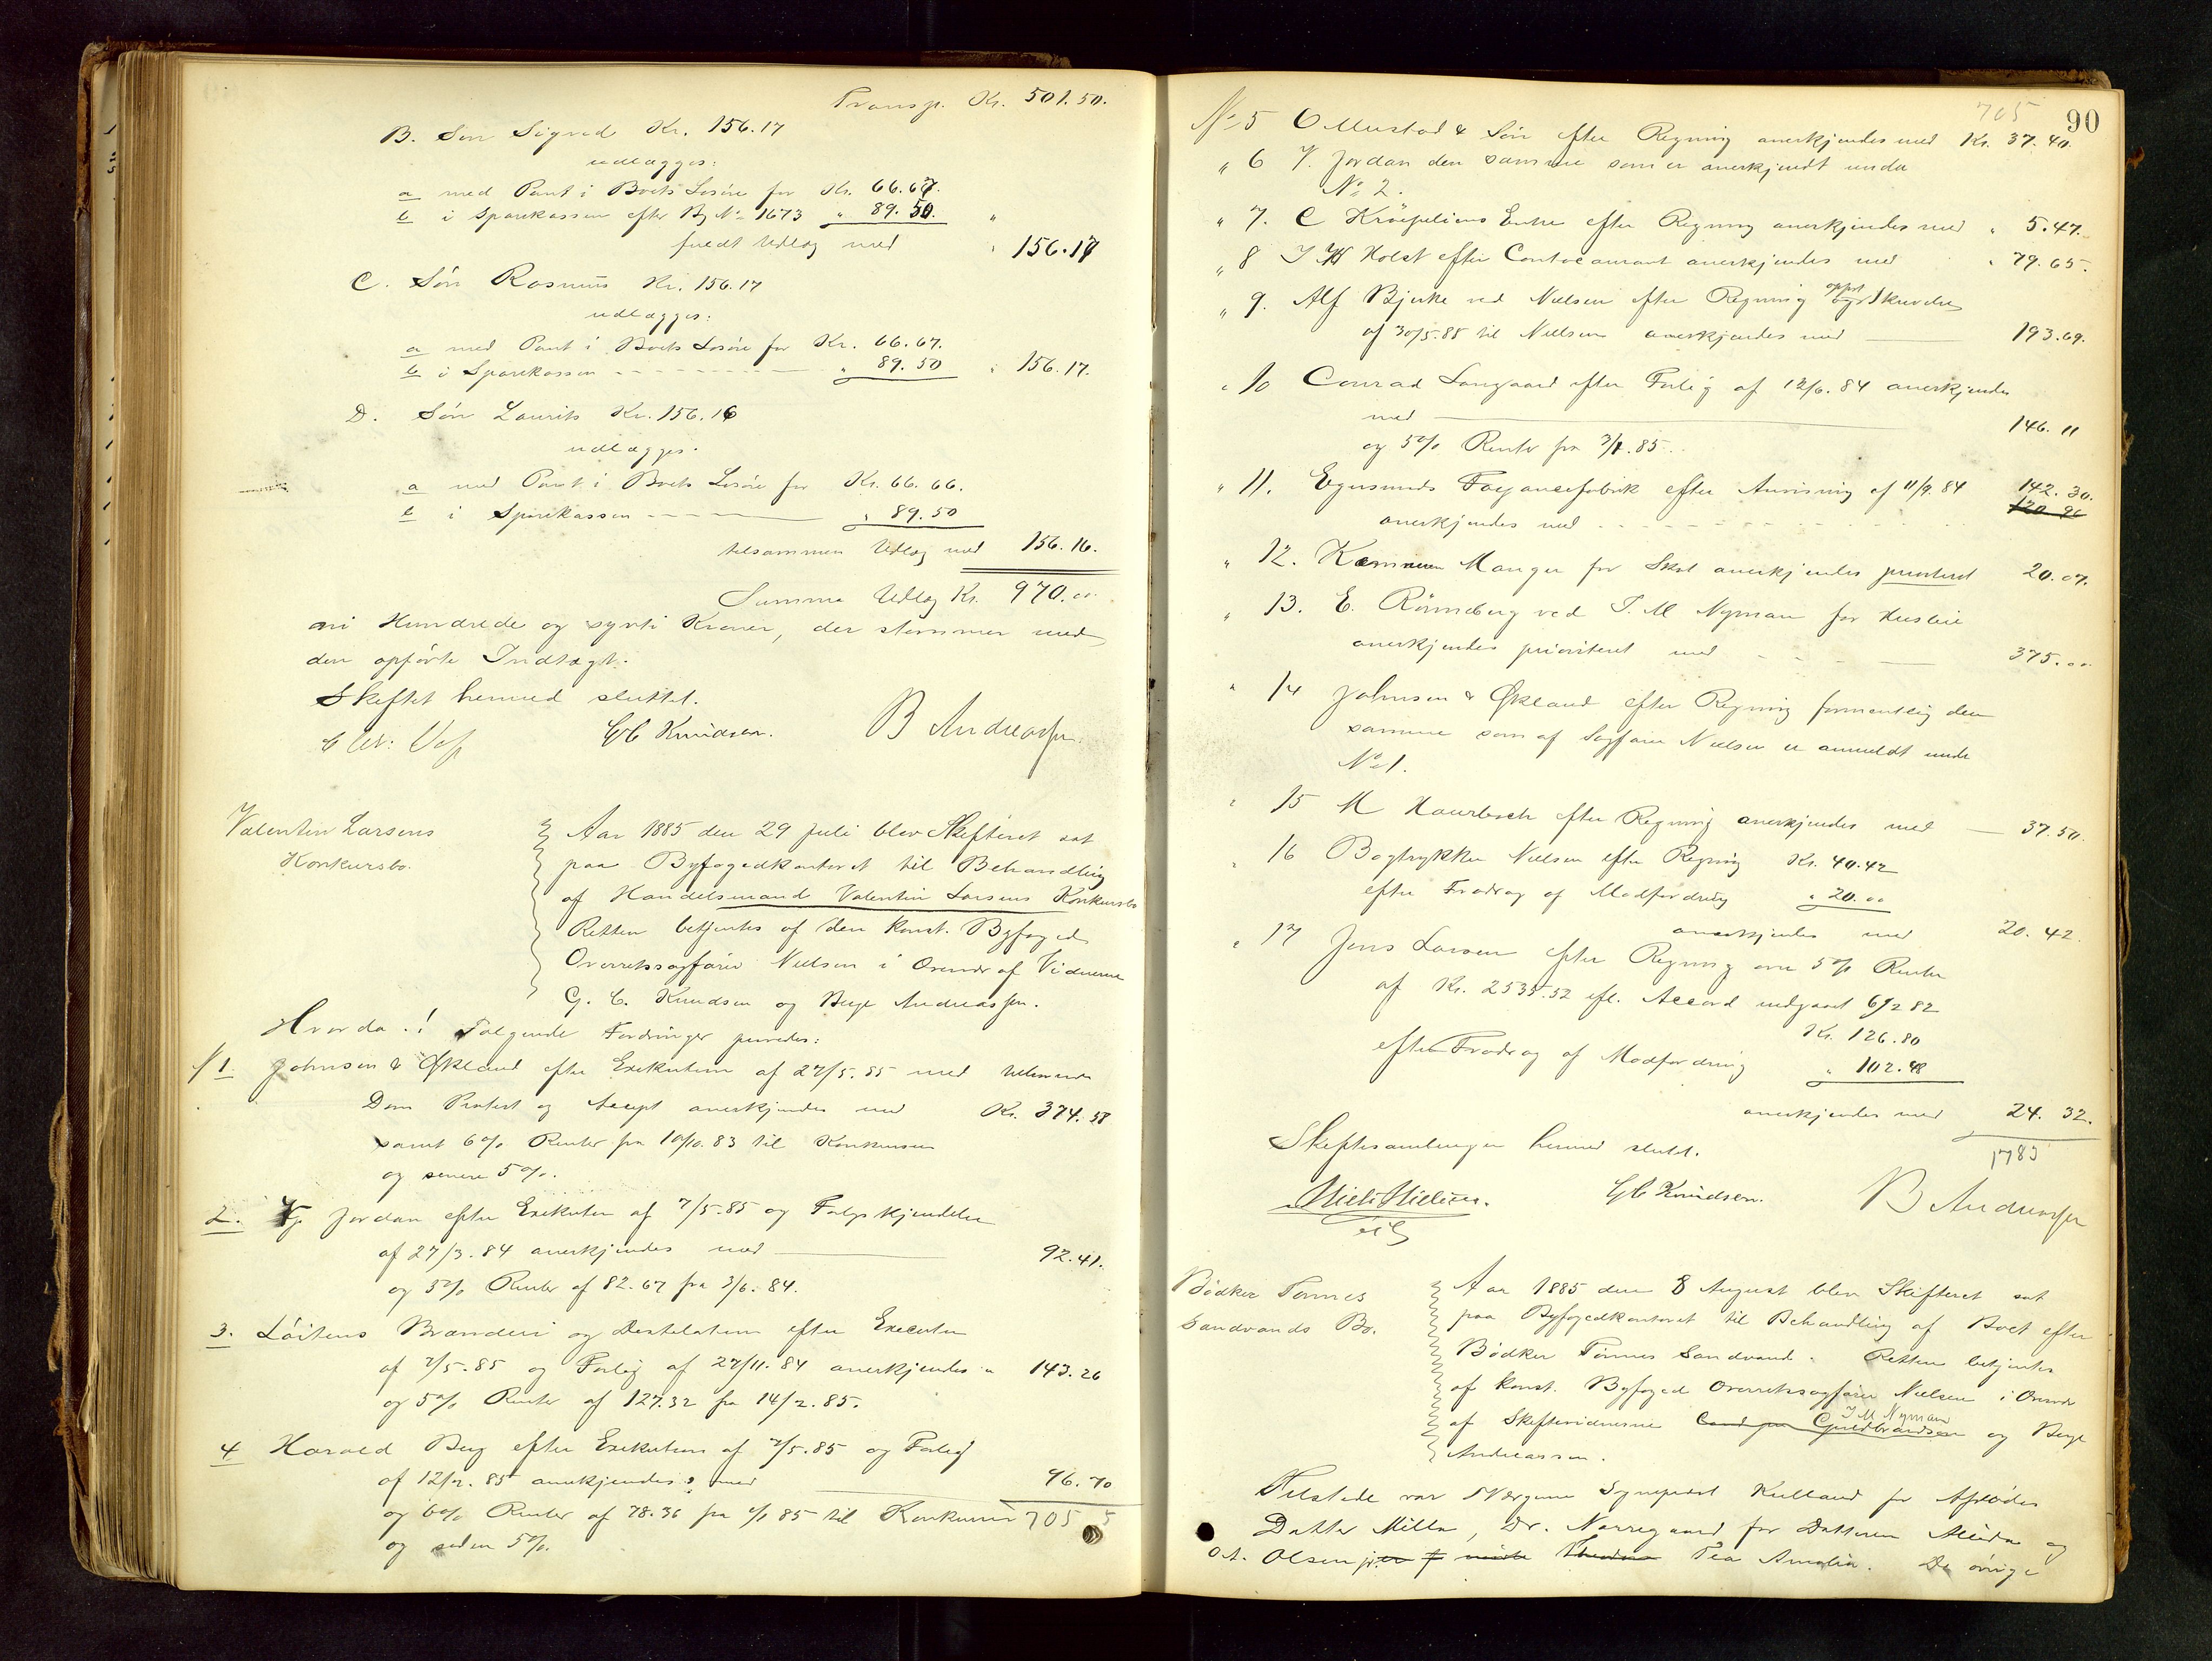 Transp. Kr. 501.50.
B. Søn Sigvad Kr. 156.17
udlægges:
a med Pant i Boets Løsøre for Kr. 66.67.
b i Sparekassen efter Bg No 1673 " 89.50. "
fuldt Udlæg med " 156.17
C. Søn Rasmus Kr. 156.17
udlægges:
a med Pant i Boets Løsøre for Kr. 66.67.
b i Sparekassen " 89.50 " 156.17.
D. Søn Laurits Kr. 156.16
udlægges.
a med Pant i Boets Løsøre for Kr. 66.66.
b i Sparekassen " 89.50
tilsammen Udlæg med 156.16.
Summa Udlæg Kr. 970.00
ni Hundrede og sytti Kroner, der stemmer med
den opførte Indtægt.
Skiftet hermed sluttet.
G C Knudsen. B Andreassen.
Valentin Larsens
Konkursbo.
Aar 1885 den 29 Juli blev Skifteret sat
paa Byfogedkontoret til Behandling
af Handelsmand Valentin Larsens Konkursbo
Retten betjentes af den konst. Byfoged
Overretssagfører Nielsen i Overvær af Vidnerne
G. C. Knudsen og Berge Andreassen.
Hvorda.! Følgende Fordringer prøvedes:
No 1. Johnsen & Økland efter Exekution af 27/5.85 med Udenv.
Dom Protest og Accept anerkjendes med Kr. 374.58
samt 6% Renter fra 10/10.83 til Konkursen
og senere 5%.
2. Jordan efter Exekution af 7/5.85 og Følgeskjendelse
af 27/3.84 anerkjendes med 92.41.
og 5% Renter af 82.67 fra 3/6.84.
3. Løitens Brænderi og Destilation efter Execution
af 7/5.85 og Forlig af 27/11.84 anerkjendes " 143.26
og 5% Renter af 127.32 fra 14/2.85.
4 Harald Berg efter Exekution af 7/5.85 og Forlig
af 12/2.85 anerkjendes med 96.70
og 6% Renter af 78.36 fra 1/1 85 til Konkursen 705
og siden 5%.
705 90
No 5 O Mustad & Søn efter Regning anerkjendes med Kr. 37.40.
" 6 V. Jordan den samme som er anerkjendt under
No 2.
" 7. C Krøepeliens Enke efter Regning anerkjendes med " 5.47.
" 8 Holst efter Contocourant anerkjendes med " 79.65.
" 9. Alf Bjerke ved Nielsen efter Regning og Skrivelse
af 30/5.85 til Nielsen anerkjendes med 193.69.
" 10 Conrad Langaard efter Forlig af 12/6.84 anerkjendes
med 146.11
og 5% Renter fra 3/1.85.
" 11. Egersunds Fayancefabrik efter Anvisning af 11/9.84 142.30.
anerkjendes med 120.96
" 12. Kæmneren Manger for Skat anerkjendes prioriteret 20.07.
" 13. E. Rønneberg ved T. M Nyman for Husleie
anerkjendes prioriteret med 375.00
" 14 Johnsen & Økland efter Regning formentlig den
samme som af Sagfører Nielsen er anmeldt under
No 1.
" 15 M Haurbach efter Regning anerkjendes med 37.50.
" 16 Bogtrykker Nielsen efter Regning Kr. 40.42
efter Fradrag af Modfordring " 20.00
anerkjendes med 20.42.
" 17 Jens Larsen efter Regning over 5% Renter
af Kr. 2535.52 efl. Accord indgaaet 6/2 82
Kr. 126.80
efter Fradrag af Modfordring " 102.48
anerkjendes med 24.32.
Skiftesamlingen hermed sluttet. 1783
Niels Nielsen. G C Knudsen. B Andreassen
Bødker Tønnes
Sandvands Bo.
Aar 1885 den 8 August blev Skifteret sat
paa Byfogedkontoret til Behandling af Boet efter
Bødker Tønnes Sandvand. Retten betjentes
af konst. Byfoged Overretssagfører Nielsen i Overvær
T M Nyman
af Skiftevidnerne Guldbrandsen og Berge
Andreassen.
Tilstede var Værgerne Kulland for Afdødes
Datter Milla, Dr. Nørregaard for Datteren Alida og
O.A. Olsen for Tea Amalia. De øvrige